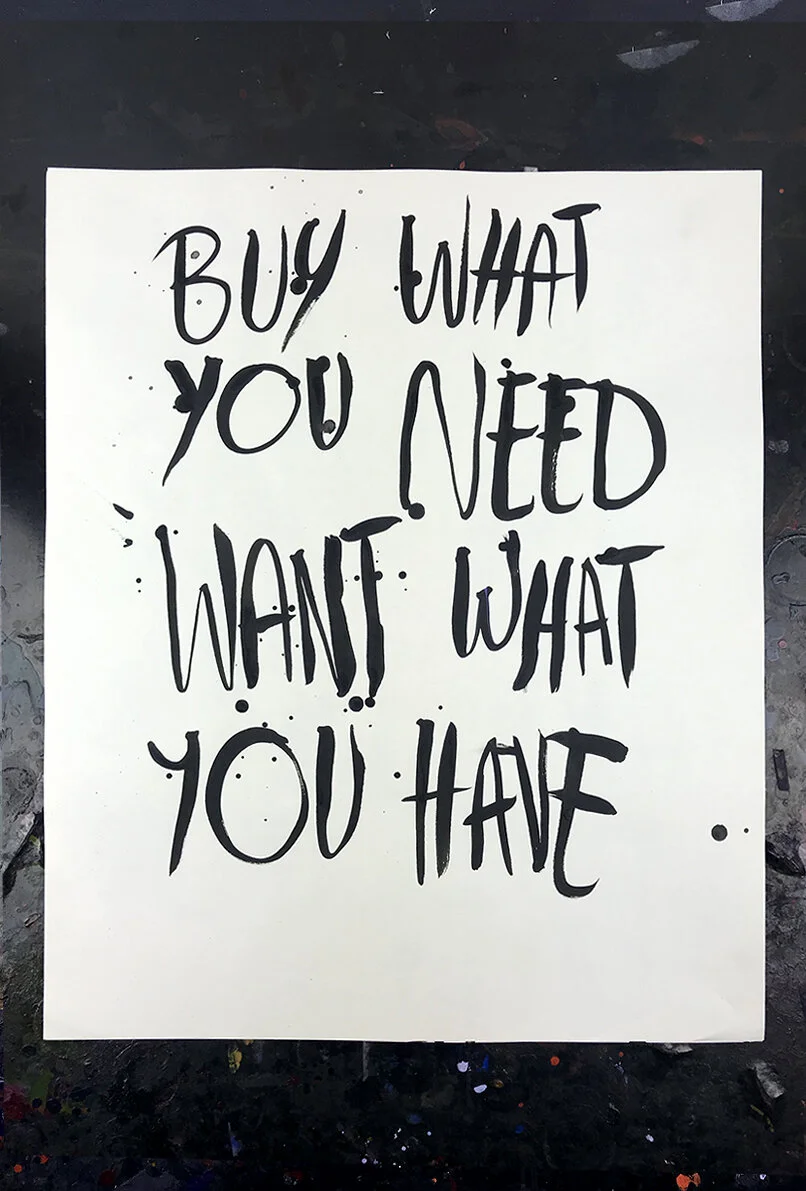 BUY WHAT
YOU NEED
WANT WHAT
YOU HAVE